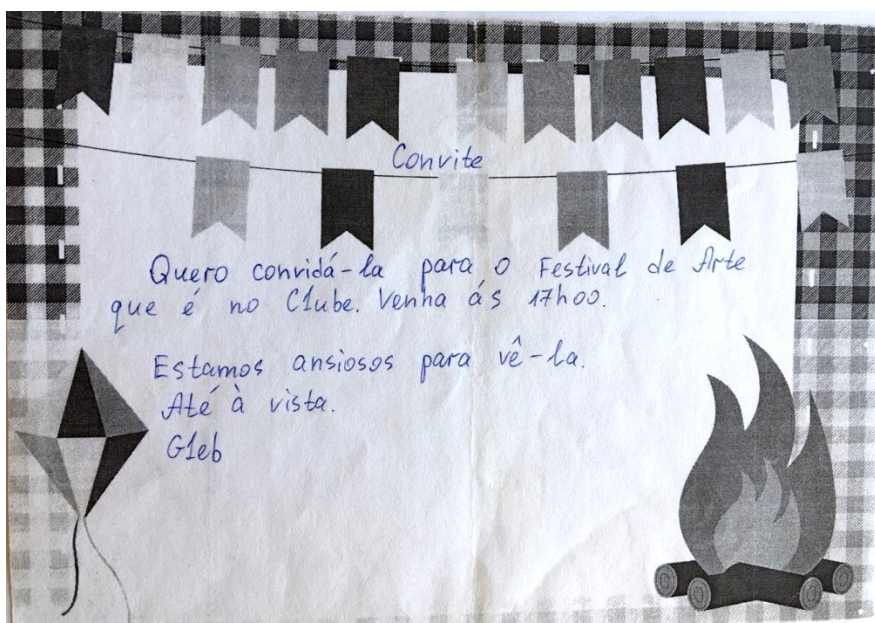 Convite
Quero convidá-la para o Festival de Arte
que é no Clube. Venha ás 17h00.
Estamos ansiosos para vê-la.
Até à vista.
Gleb